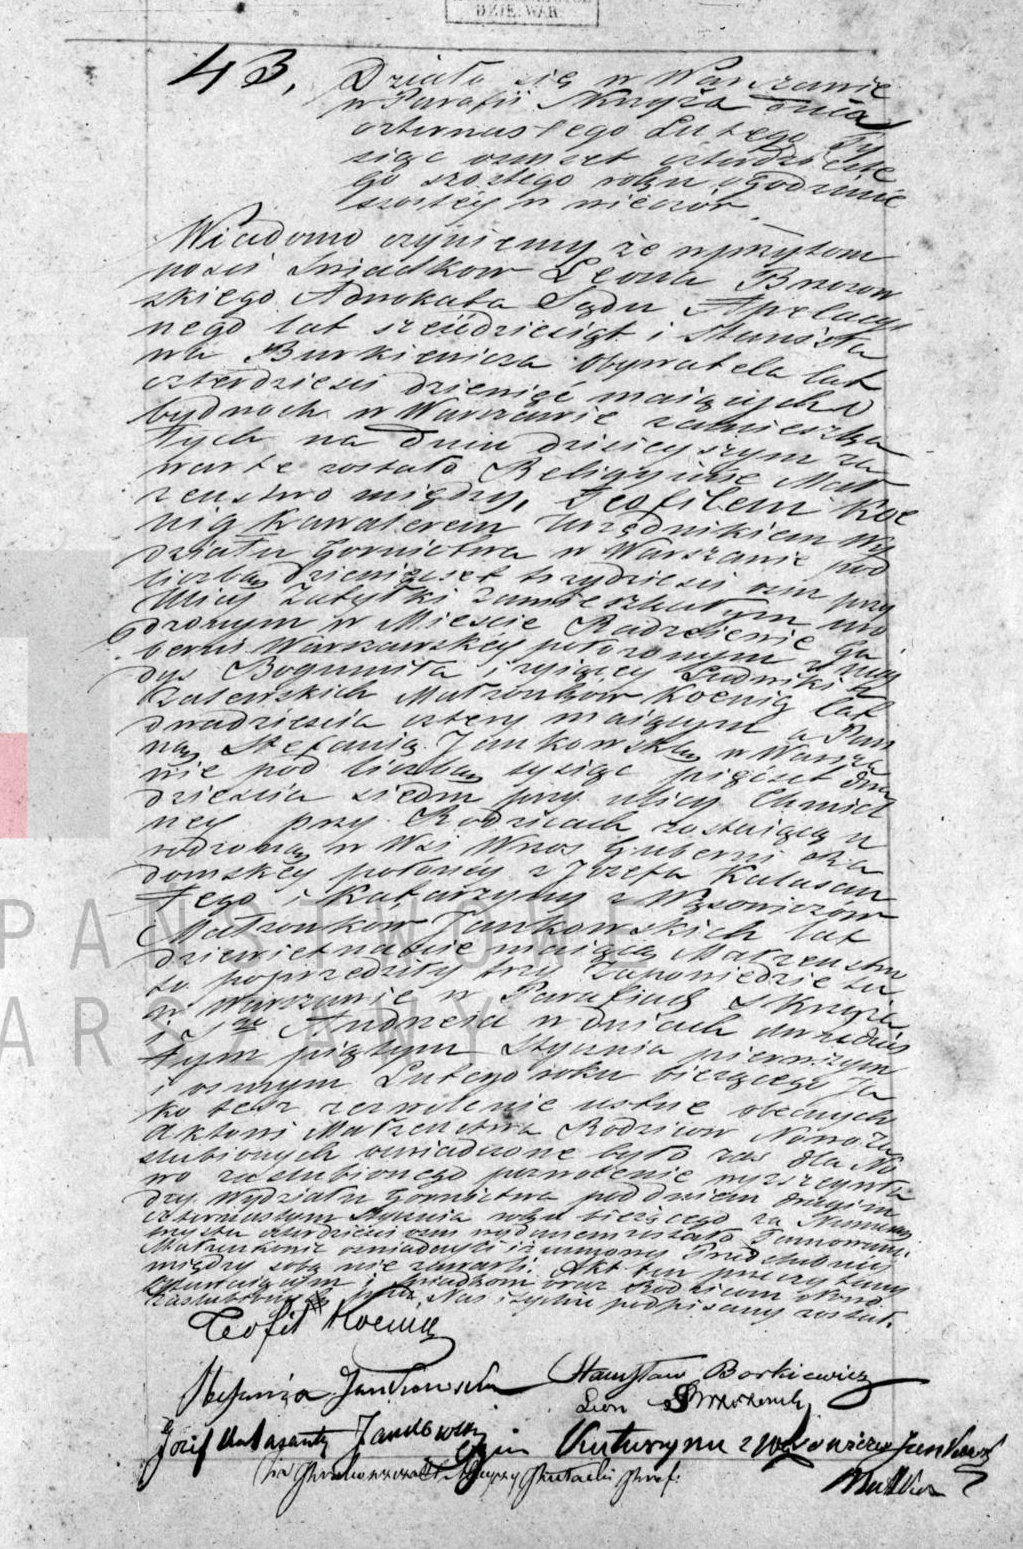 DZIE. WAR.
43. Działo się w Warszawie
w Parafii S Krzyża dnia
czternastego Lutego Ty
siąc osmset czterdzieste
go szostego roku o godzinie
szostéy w wieczór
Wiadomo czyniemy że wprzytom
ności świadkow Leona Brzozow
skiego Adwokata Sądu Apelacyi
nego lat sześćdziesiąt i Stanisła
wa Burkiewicza Obywatela lat
czterdzieści dziewięć maiących
bydwoch w Warszawie zamieszka
łych na dniu dzisieyszym za
warte zostało Religijne Mał
zeństwo między, Teofilem Koe
nig Kawalerem Urzędnikiem Wy
działu Gornictwa w Warszawie pod
liczbą dziewięćset trzydzieści osm przy
Ulicy zamieszkałym uro
dzonym w Mieście Radzieiewie Gu
berni Warszawskiéy położonym z nie
dys Bogumiła i żyiącey Ludwiki z
Zalewskich Małzonkow Koenig lat
dwadzieścia cztery maiącym a Pan
ną Stefanią Jankowską w Warsza
wie pod liczbą tysiąc pięćset dwa
dzieścia siedm przy ulicy Chmiel
ney przy Rodzicach zostaiącą u
rodzoną w Wsi Wrzos Guberni Ra
domskiéy położoney z Józefa Kalasan
tego i Katarzyny z Wąsowiczów
Małzonkow Jankowskich lat
dziewietnaście maiącą Małzenstwo
to poprzedziły trzy Zapowiedzie
w Warszawie w Parafiach S Krzyża
i S Andrzeia w dniach dwudzies
tym piątym Stycznia pierwszym
i osmym Lutego roku bieżącego Ja
ko też zezwolenie ustne obecnych
aktowi Małżenstwa Rodzicow Nowoza
slubionych oswiadczone było zas dla No
wo zaslubionego pozwolenie wyższey Wła
dzy Wydziału Gornictwa pod dniem drugim
czternastym Stycznia roku bieżącego za Numerem
trzysta czterdzieści osm wydanem zostało
Małzonkowie oswiadczyli iż umowy Przedslubney
między sobą nie zawarli. Akt ten przeczytany
stawaiącym i świadkom oraz Rodzicom Nowo
zaslubionych przez Nas i tychże podpisany został.
Teofil Koenig
Stefania Jankowska Stanisław Borkiewicz
Leon Brzozowski
Józef Kalasanty Jankowski Ojciec Katarzyna z Wąsowiczow Jankowska
Matka